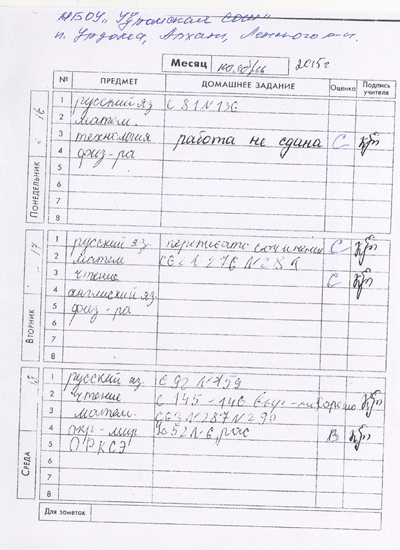 МБОУ "Урдомская СОШ"
п. Урдома, Архан, Ленского р-н.
Месяц ноябрь 2015г
№ ПРЕДМЕТ ДОМАШНЕЕ ЗАДАНИЕ Оценка Подпись учителя
ПОНЕДЕЛЬНИК 16
1 русский яз С 81 N 136
2 матем.
3 технология работа не сдана С
4 физ-ра
5
6
7
8
ВТОРНИК 17
1 русский яз. переписать сочинение С
2 матем
3 чтение С
4 английский яз.
5 физ-ра
6
7
8
СРЕДА
1 русский яз. С 92 N 159
2 чтение С 145-146
3 матем. С 63 N 287 N 290
4 окр-мир В
5 ОРКСЭ
6
7
8
Для заметок